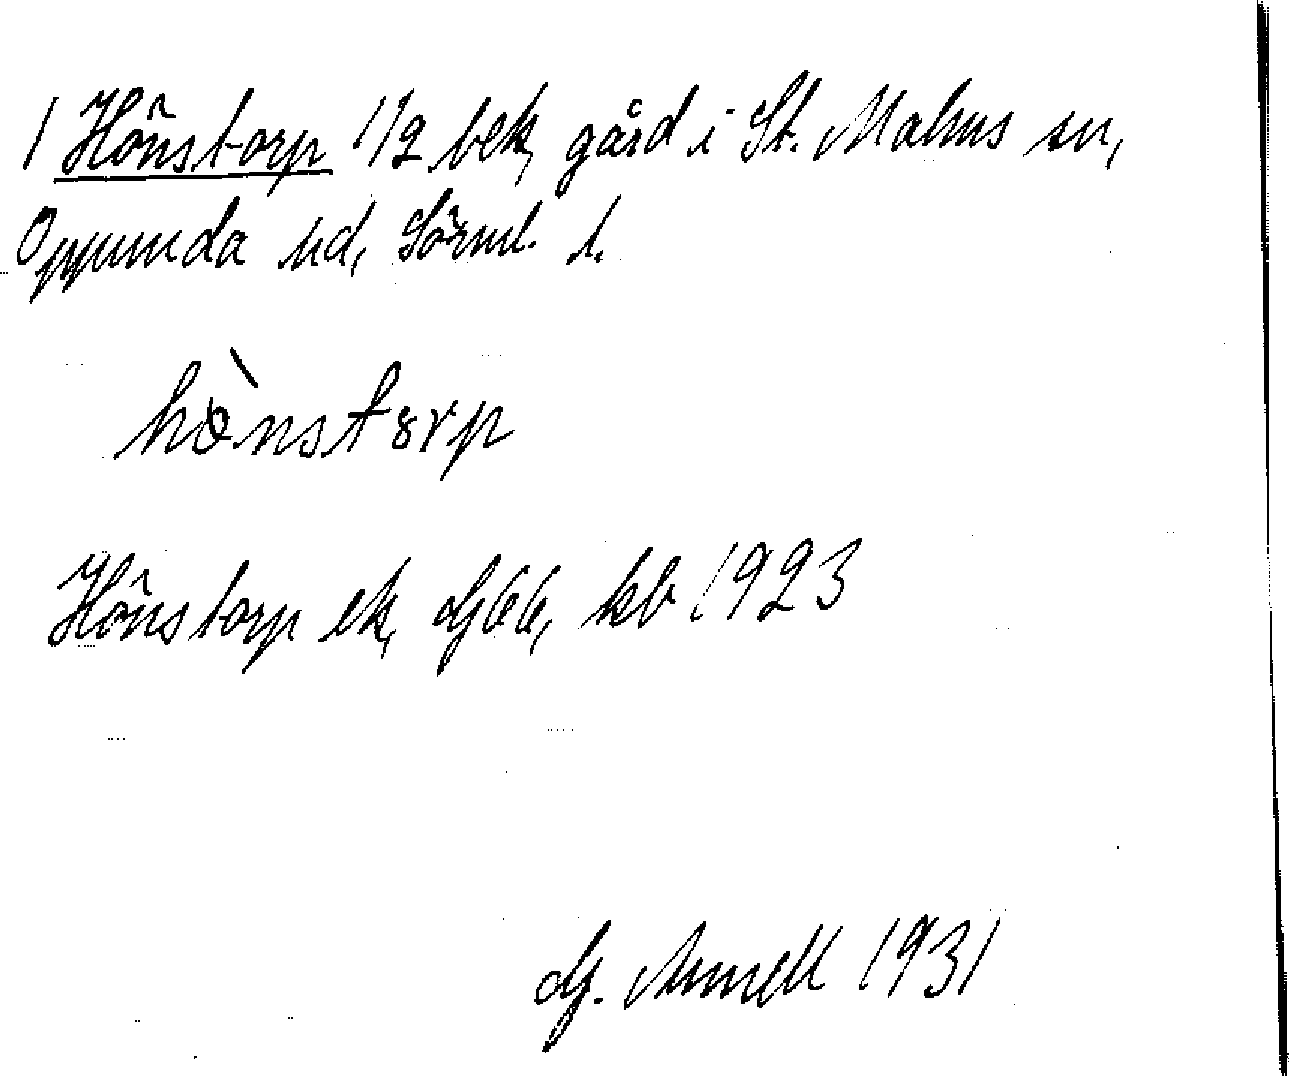 1 Hönstorp 1/2 bek, gård i St. Malms sn,
Oppunda hd, Sörml. l.
hònstorp
Hönstorp ek, G66, kb 1923
G. Arnell 1931